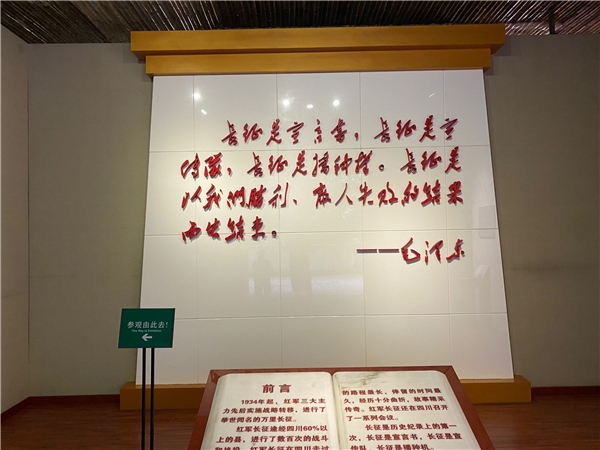 长征是宣言书，长征是宣
传队，长征是播种机。长征是
以我們胜利、敌人失败的结果
而告结束。
——毛泽东
参观由此去!
This Way to Exhibition
前言
1934年起，红军三大主
力先后实施战略转移，进行了
举世闻名的万里长征。
红军长征途经四川60%以
上的县，进行了数百次的战斗
和战役，红军长征在四川走过
的路程最长、停留的时间最
久，经历十分曲折，故事精采
传奇。红军长征还在四川召开
了一系列会议。
长征是历史纪录上的第一
次，长征是宣言书，长征是宣
传队，长征是播种机。